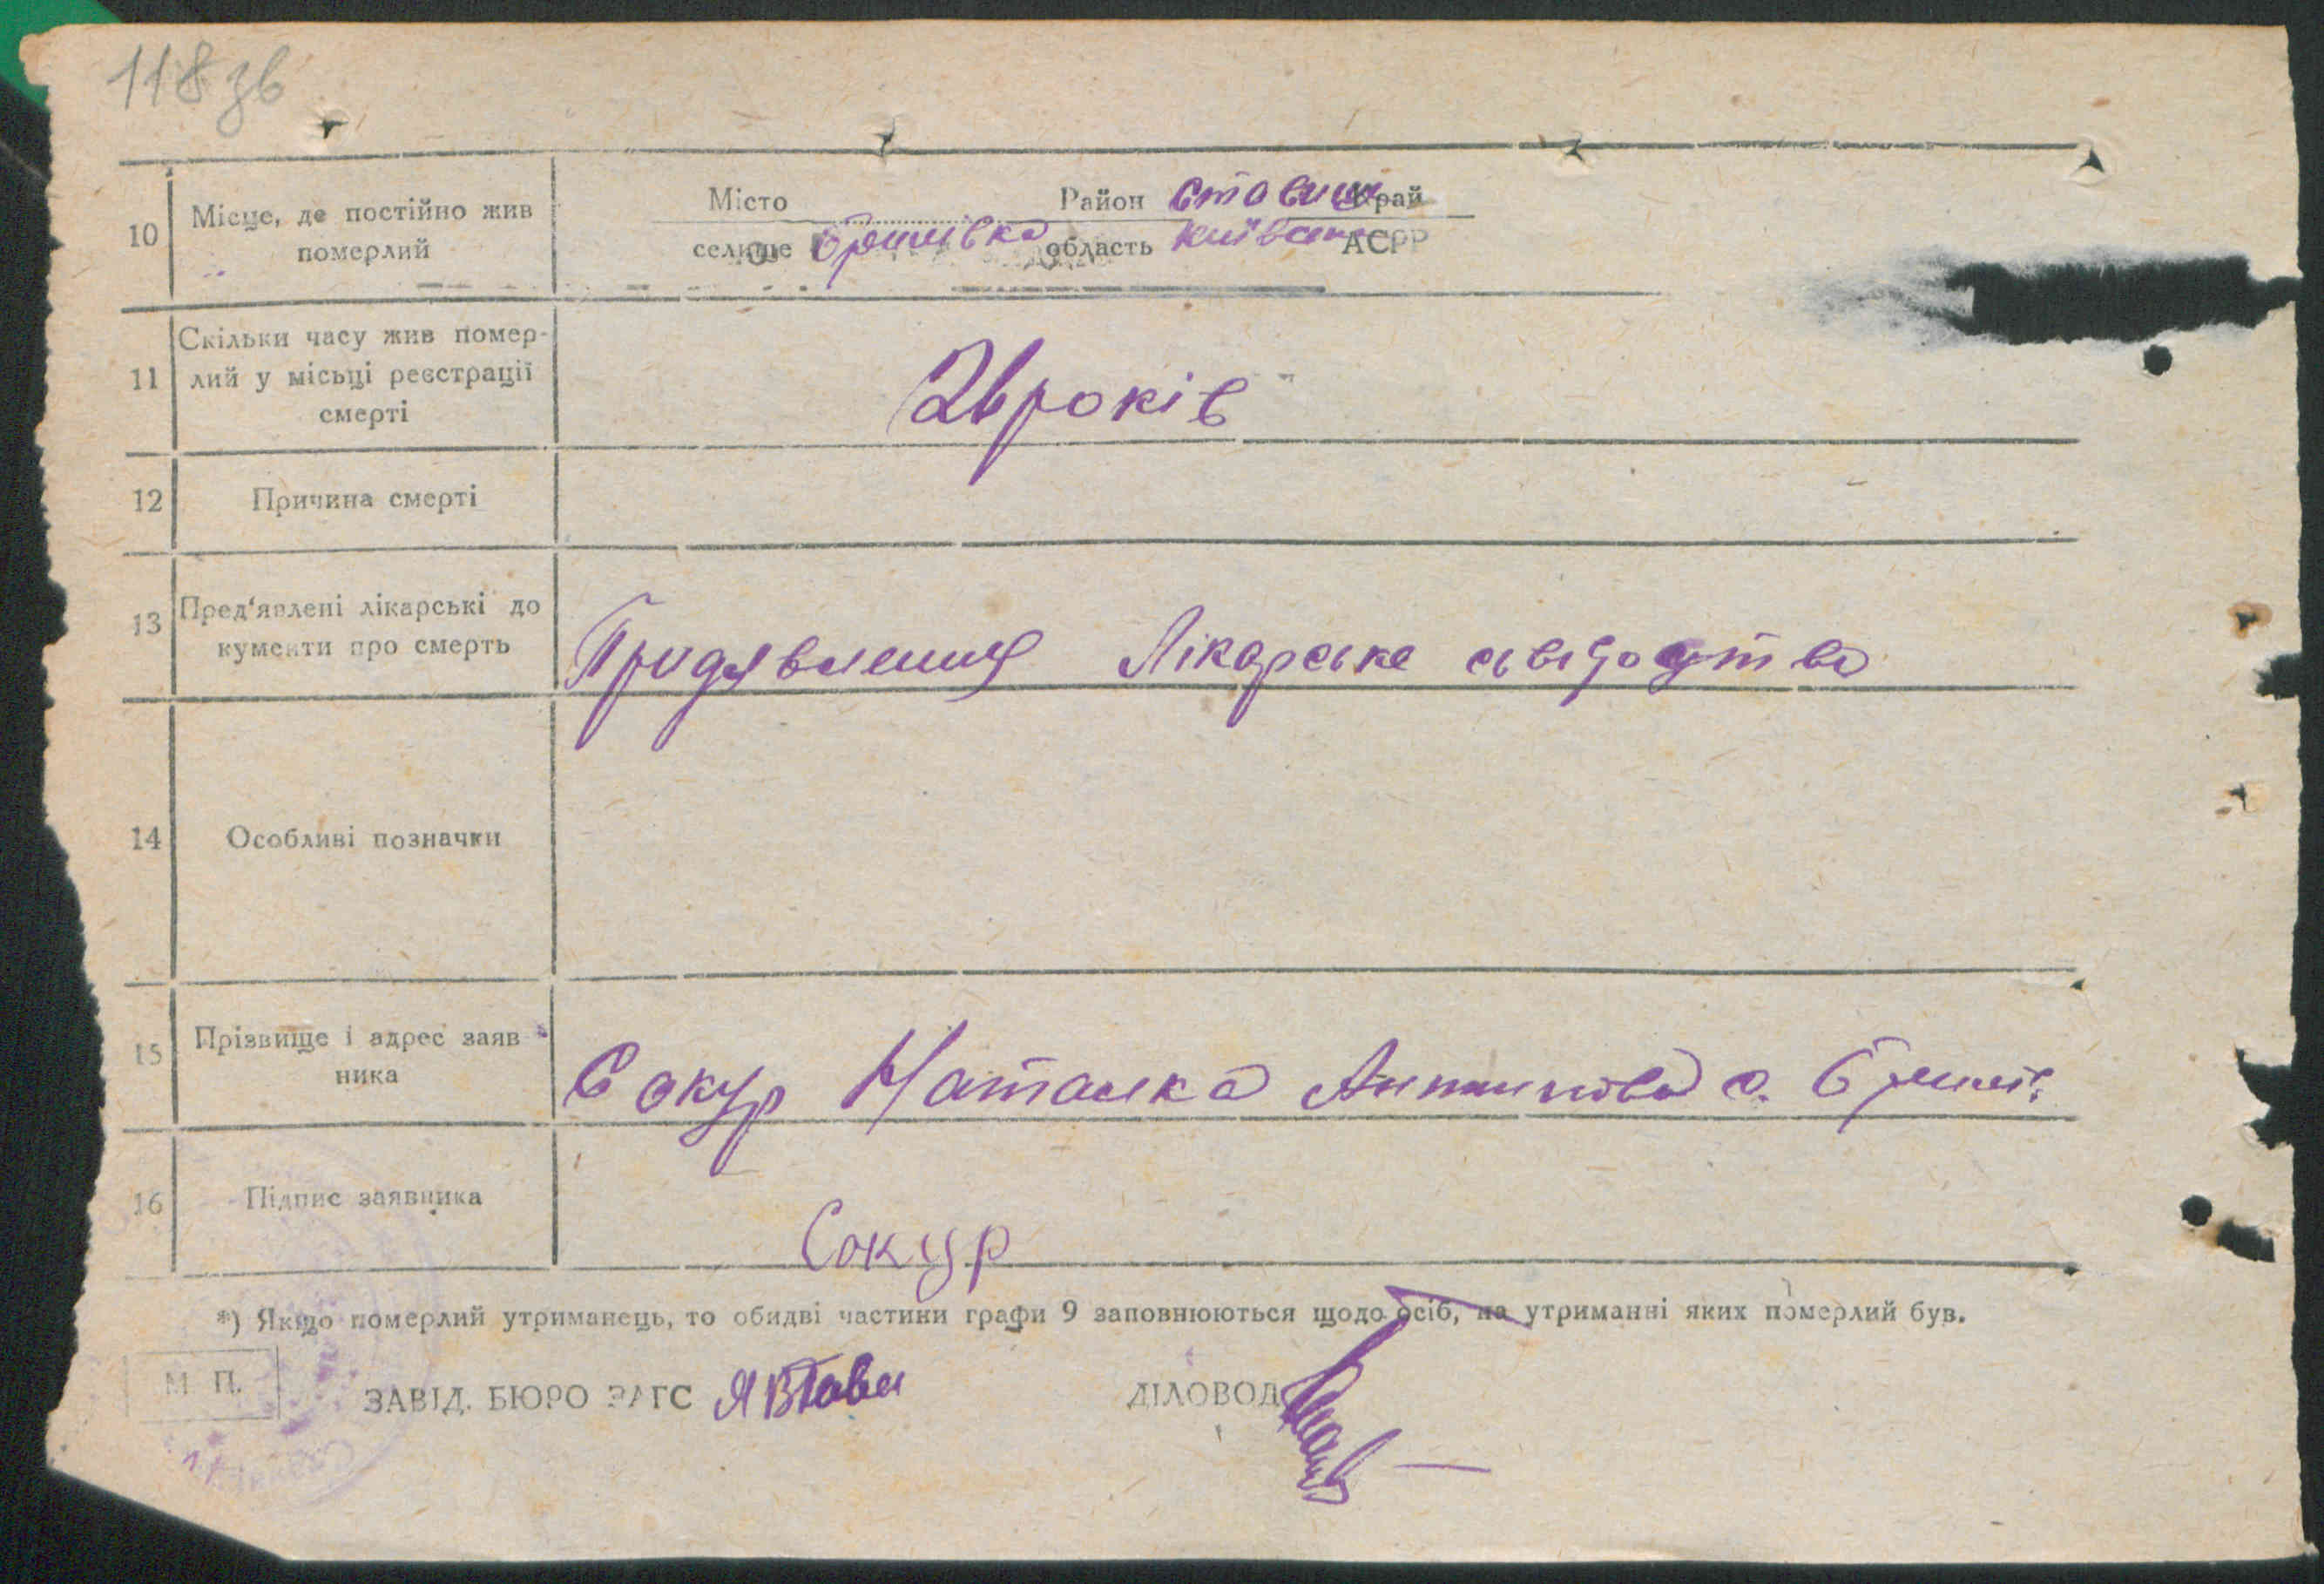 118 зв
Місто Район Ставищ Край
10 Місце, де постійно жив
померлий
селище область Київськ АСРР
11 Скільки часу жив помер-
лий у місьці реєстрації
смерті
26 років
12 Причина смерті
13 Пред'явлені лікарські до
кументи про смерть
Лікарське
14 Особливі позначки
15 Прізвище і адрес заяв
ника
Сокур Наталка с.
16 Підпис заявника
Сокур
*) Якщо померлий утриманець, то обидві частини графи 9 заповнюються щодо осіб, на утриманні яких померлий був.
М. П.
ЗАВІД. БЮРО ЗАГС ДІЛОВОД